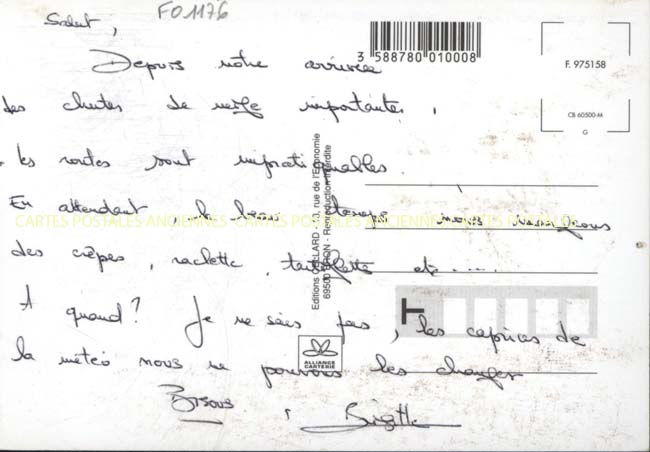 FO1176
Salut,
Depuis notre arrivée
des chutes de neige importantes,
les routes sont impratiquables.
En attendant, le beau temps nous mangeons
des crêpes, raclette, tartiflette etc....
A quand? Je ne sais pas, les caprices de
la météo nous ne pouvons les changer
Bisous, Brigitte
3 588780 010008
F. 975158
CB 60500-M
G
69500 BRON - Reproduction interdite
ALLIANCE
CARTERIE
CARTES POSTALES ANCIENNES CARTES POSTALES ANCIENNES CARTES POSTALES